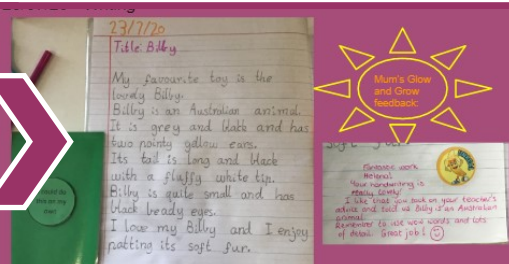 23/7/20
Title: Bilby
My favourite toy is the
lovely Bilby.
Bilby is an Australian animal.
It is grey and black and has
two pointy yellow ears.
Its tail is long and black
with a fluffy white tip.
Bilby is quite small and has
black beady eyes.
I love my Bilby and I enjoy
patting its soft fur.
Mum's Glow
and Grow
feedback:
Fantastic work
Your handwriting is
really lovely!
I like that you took on your teacher's
advice and told us Bilby is an Australian
animal.
Remember to use wow words and lots
of detail. Great job!